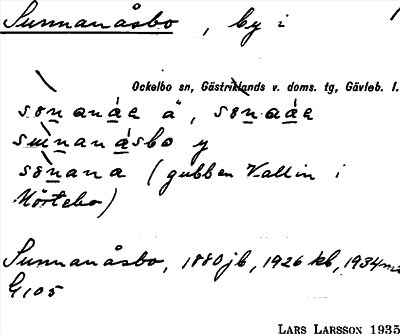 Sunnanåsbo, by i
Ockelbo sn, Gästriklands v. doms. tg, Gävleb. l.
sɵnanáɛ ä, sɵnaáɛ
sunanásbo y
sɵnana (gubben Vallin i
Mörtebo)
Sunnanåsbo, 1880 jb, 1926 kb, 1934
G 105
LARS LARSSON 1935